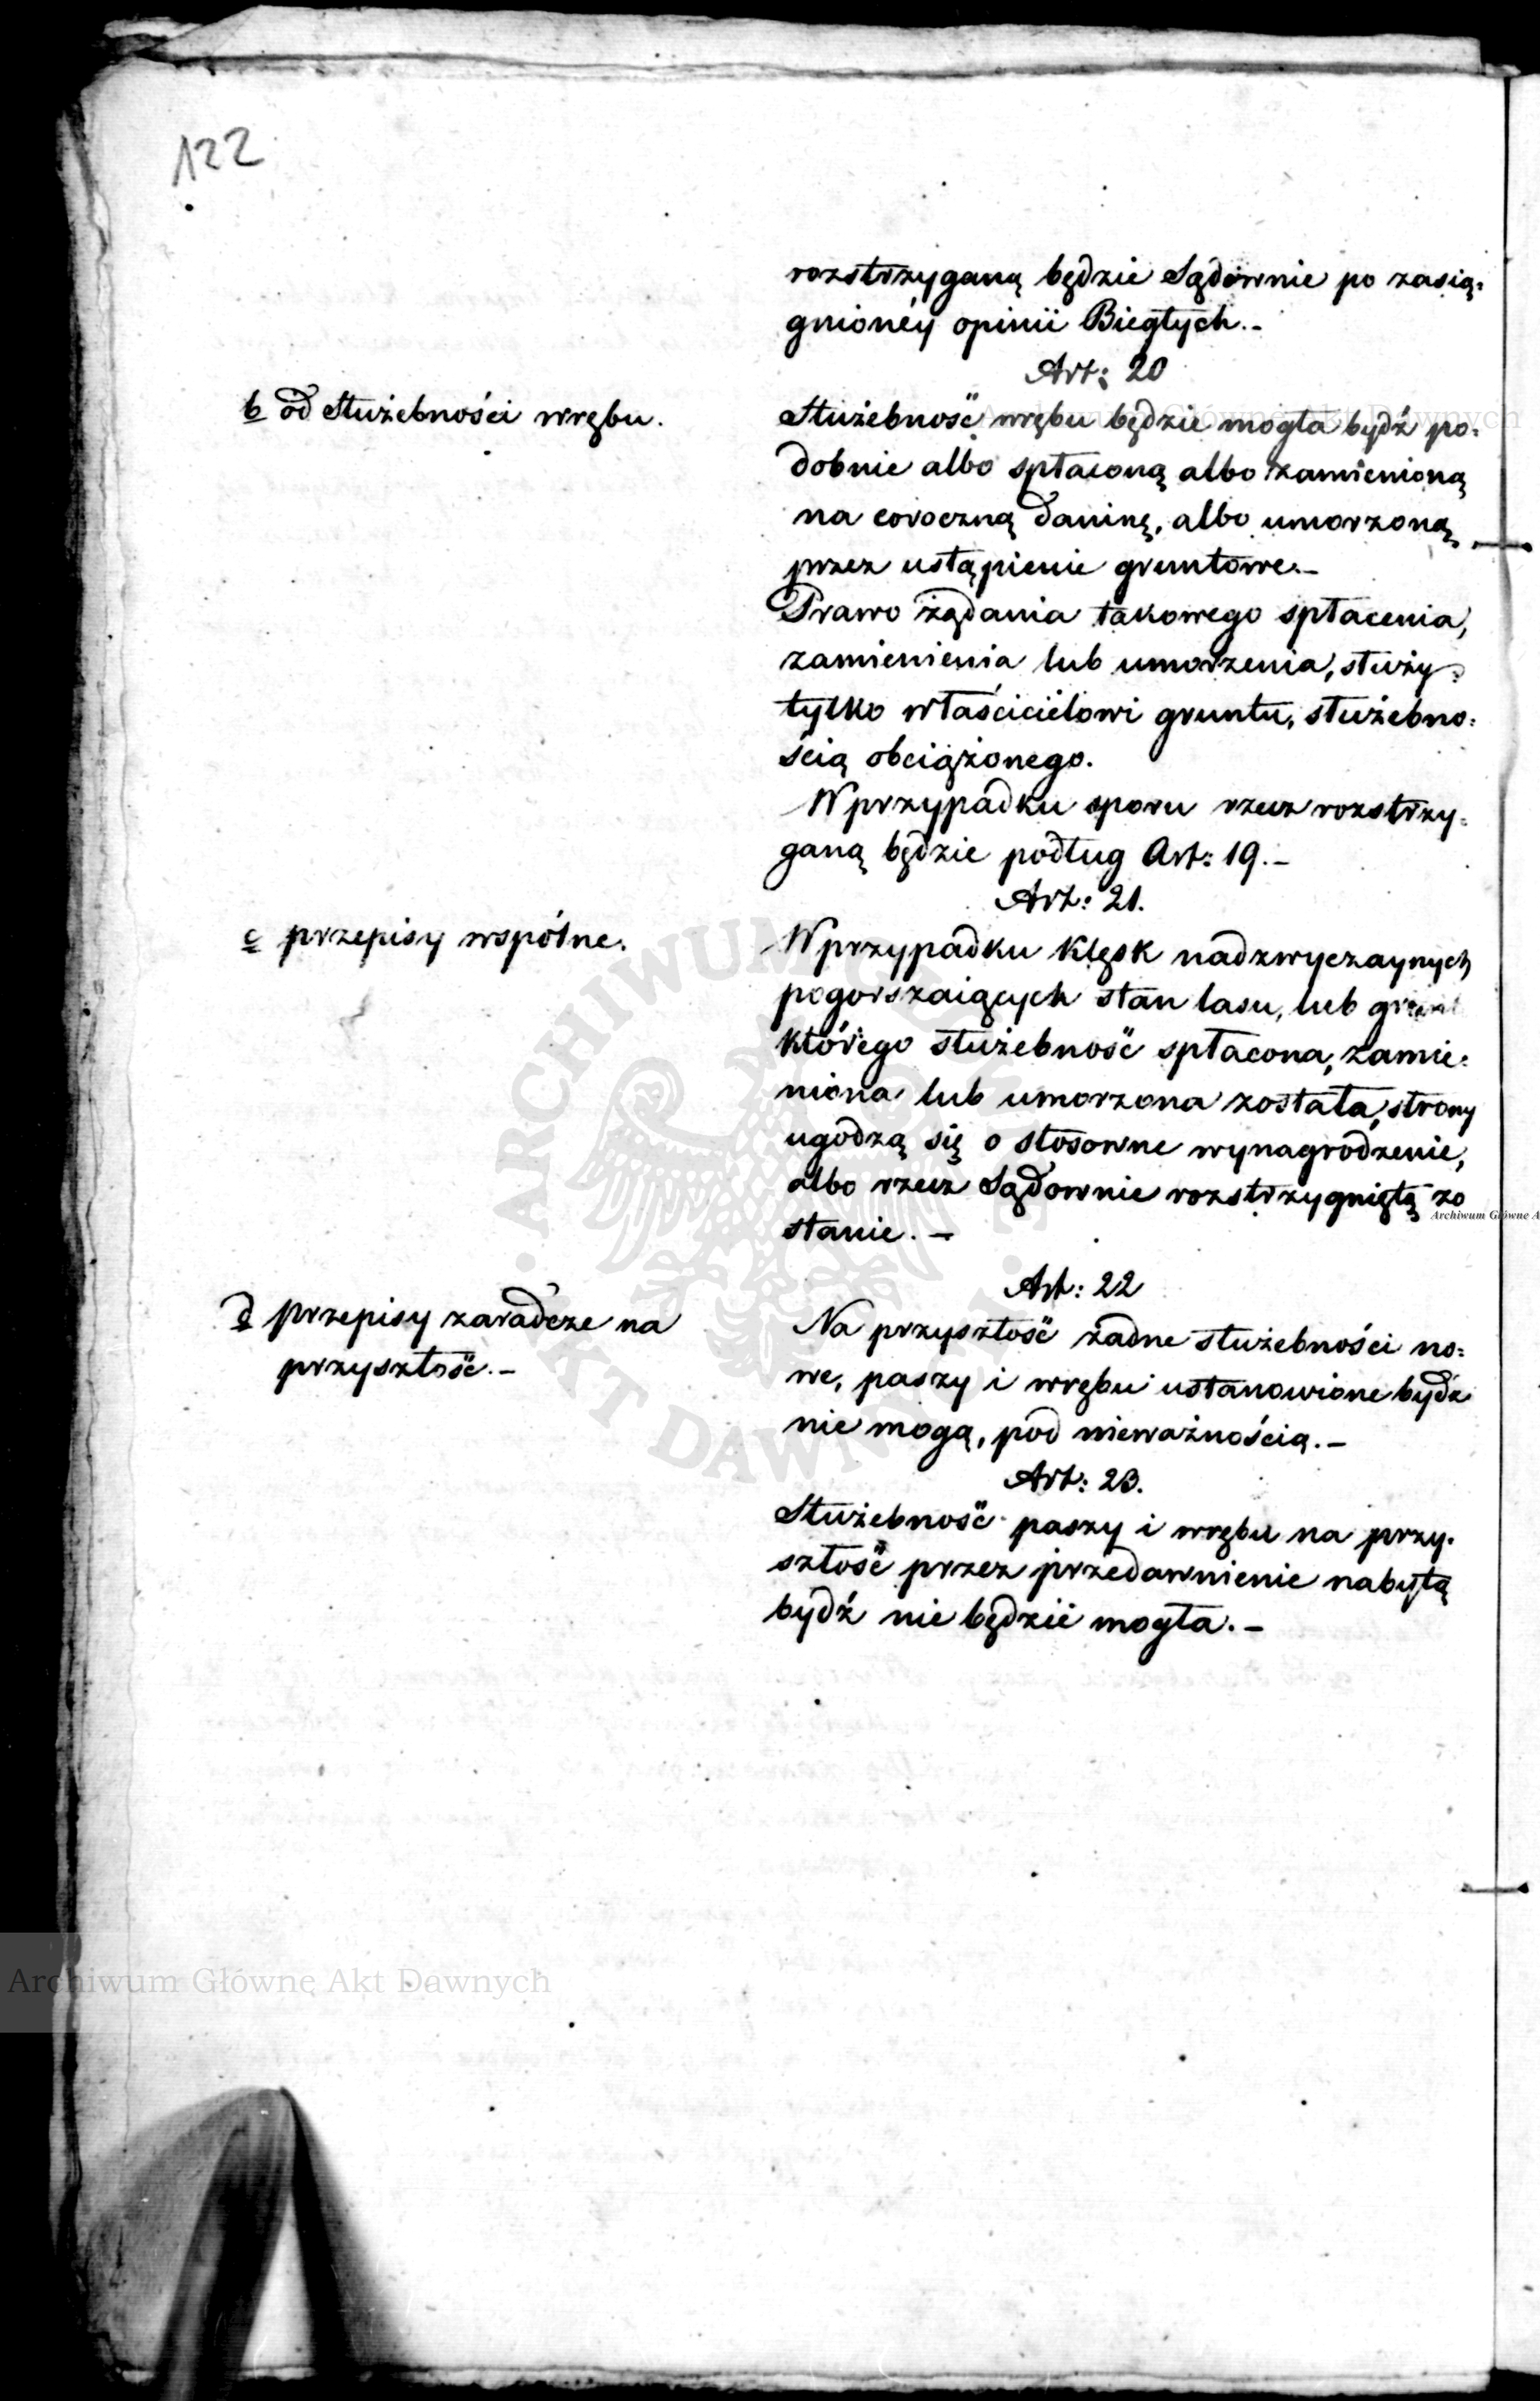 122
rozstrzyganą będzie Sądownie po zasią=
gnionéy opinii Biegłych.-
Art: 20
b od Służebności wrębu.
Służebność wrębu będzie mogła bydź po=
dobnie albo spłaconą albo zamienioną
na coroczną daninę, albo umorzoną
przez ustąpienie gruntowe.-
Prawo żądania takowego spłacenia,
zamienienia lub umorzenia, służy
tylko właścicielowi gruntu, służebno=
ścią obciążonego.
W przypadku sporu rzecz rozstrzy=
ganą będzie podług Art: 19.-
Art: 21.
c przepisy wspólne.
W przypadku klęsk nadzwyczaynych
pogorszaiących stan lasu, lub
którego służebność spłacona, zamie=
niona lub umorzona została, strony
ugodzą się o stosowne wynagrodzenie,
albo rzecz Sądownie rozstrzygniętą zo
stanie.-
Art: 22
d przepisy zaradcze na
przyszłość.-
Na przyszłość żadne służebności no=
we, paszy i wrębu ustanowione bydź
nie mogą, pod nieważnością.-
Art: 23.
Służebność paszy i wrębu na przy=
szłość przez przedawnienie nabytą
bydź nie będzie mogła.-
Archiwum Główne Akt Dawnych
Archiwum Główne Akt Dawnych
Archiwum Główne A